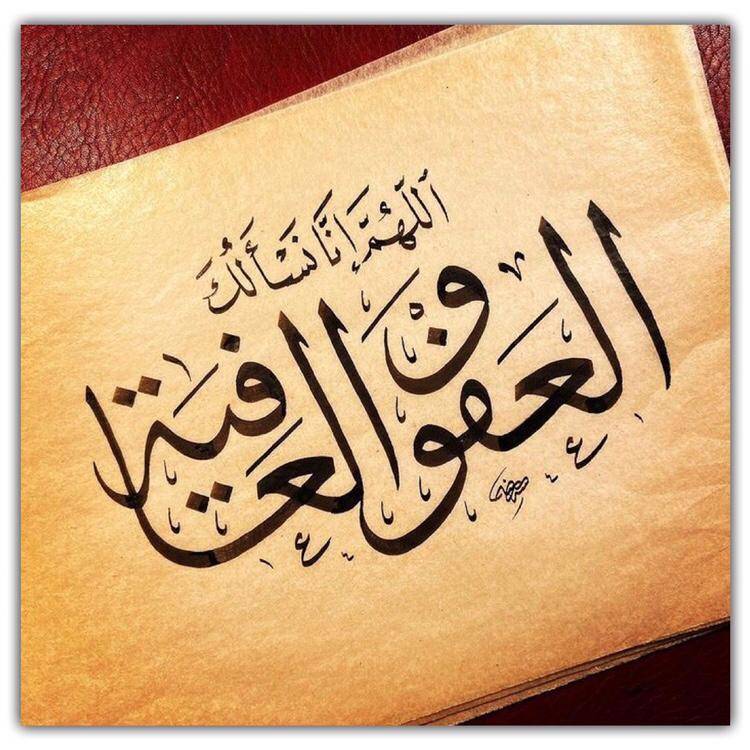 اَللّٰهُمَّ إِنَّا نَسْأَلُكَ
العفو والعافية